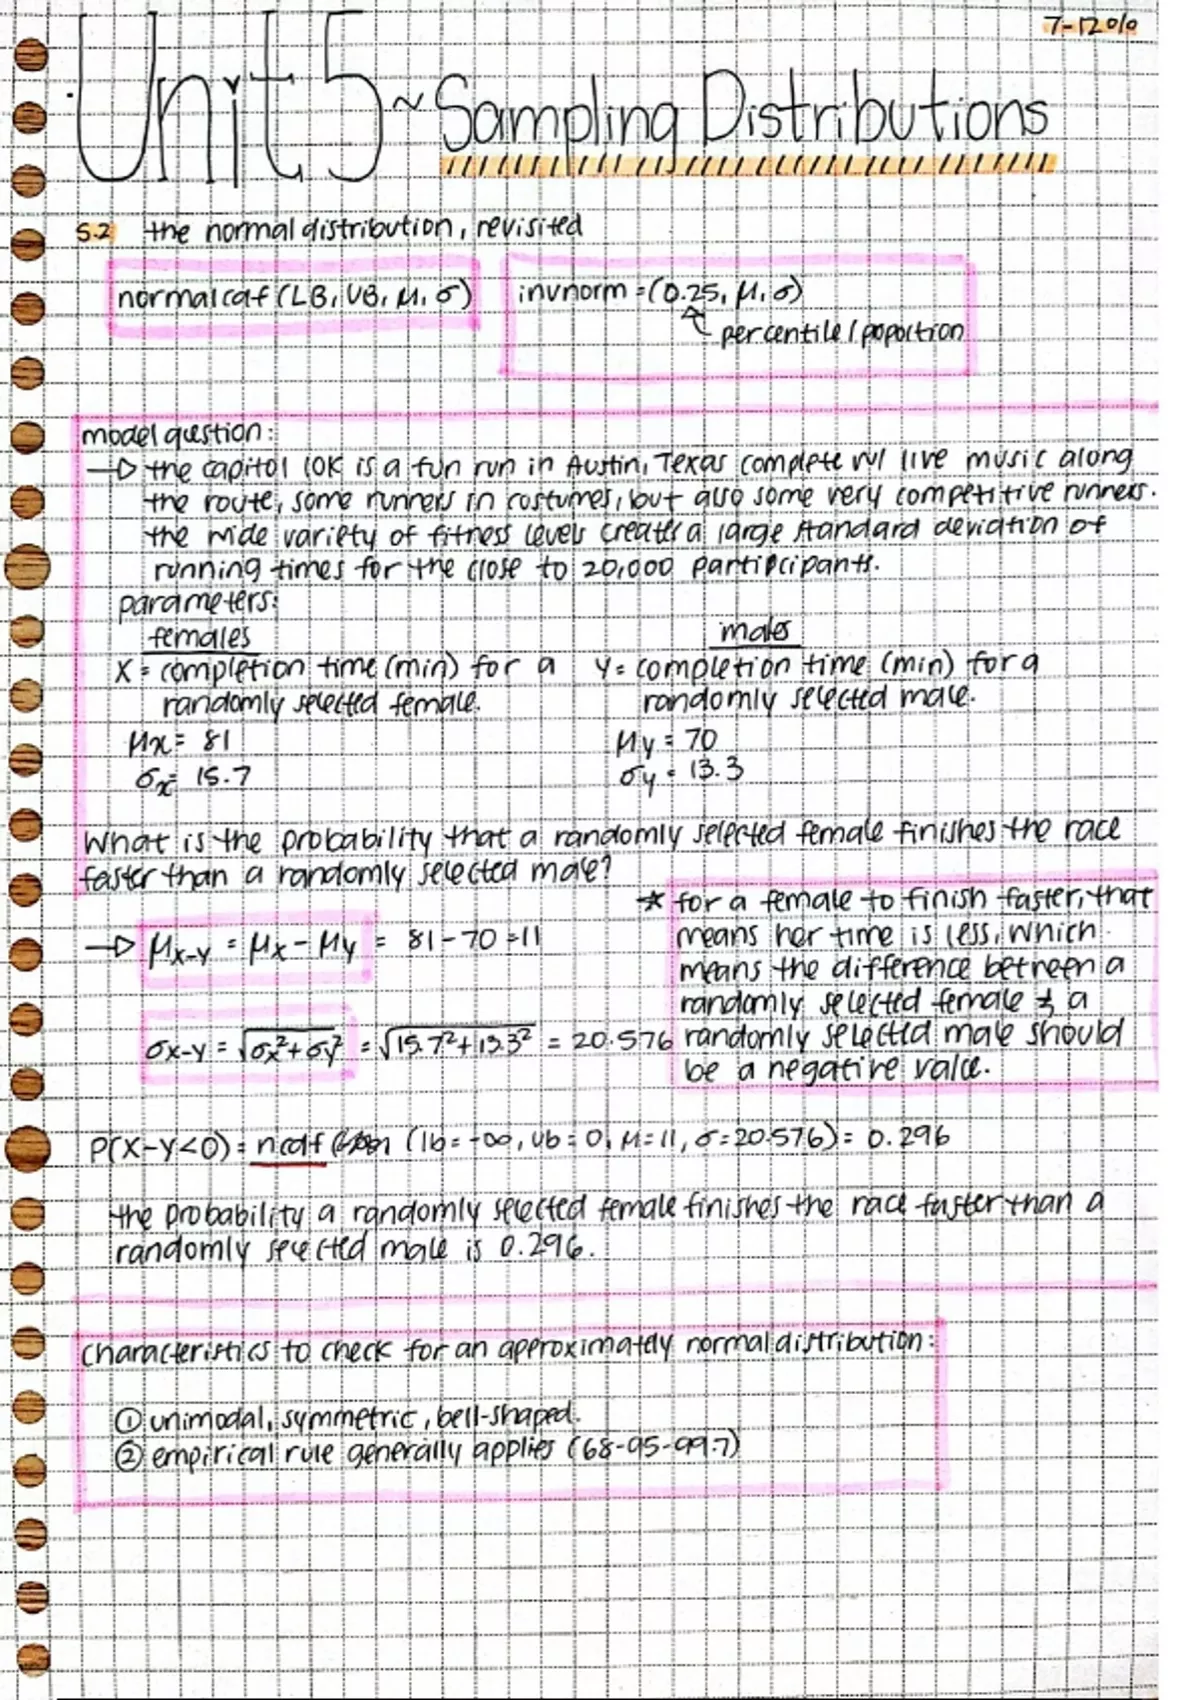 7-12%
Unit 5 ~ Sampling Distributions
5.2 the normal distribution, revisited
normalcdf (LB, UB, μ, σ)
invnorm = (0.25, μ, σ)
percentile / poportion
model question:
→ the capitol 10K is a fun run in Austin, Texas complete w/ live music along
the route, some runners in costumes, but also some very competitive runners.
the wide variety of fitness levels creates a large standard deviation of
running times for the close to 20,000 participants.
parameters:
females
males
X = completion time (min) for a
randomly selected female.
Y = completion time (min) for a
randomly selected male.
μx = 81
μy = 70
σx = 15.7
σy = 13.3
What is the probability that a randomly selected female finishes the race
faster than a randomly selected male?
→ μx-y = μx - μy = 81 - 70 = 11
σx-y = √σx² + σy² = √15.7² + 13.3² = 20.576
* for a female to finish faster, that
means her time is less, which
means the difference between a
randomly selected female & a
randomly selected male should
be a negative value.
P(X-Y<0) = ncdf (lb = -∞, ub = 0, μ = 11, σ = 20.576) = 0.296
the probability a randomly selected female finishes the race faster than a
randomly selected male is 0.296.
characteristics to check for an approximately normal distribution:
① unimodal, symmetric, bell-shaped.
② empirical rule generally applies (68-95-99.7)